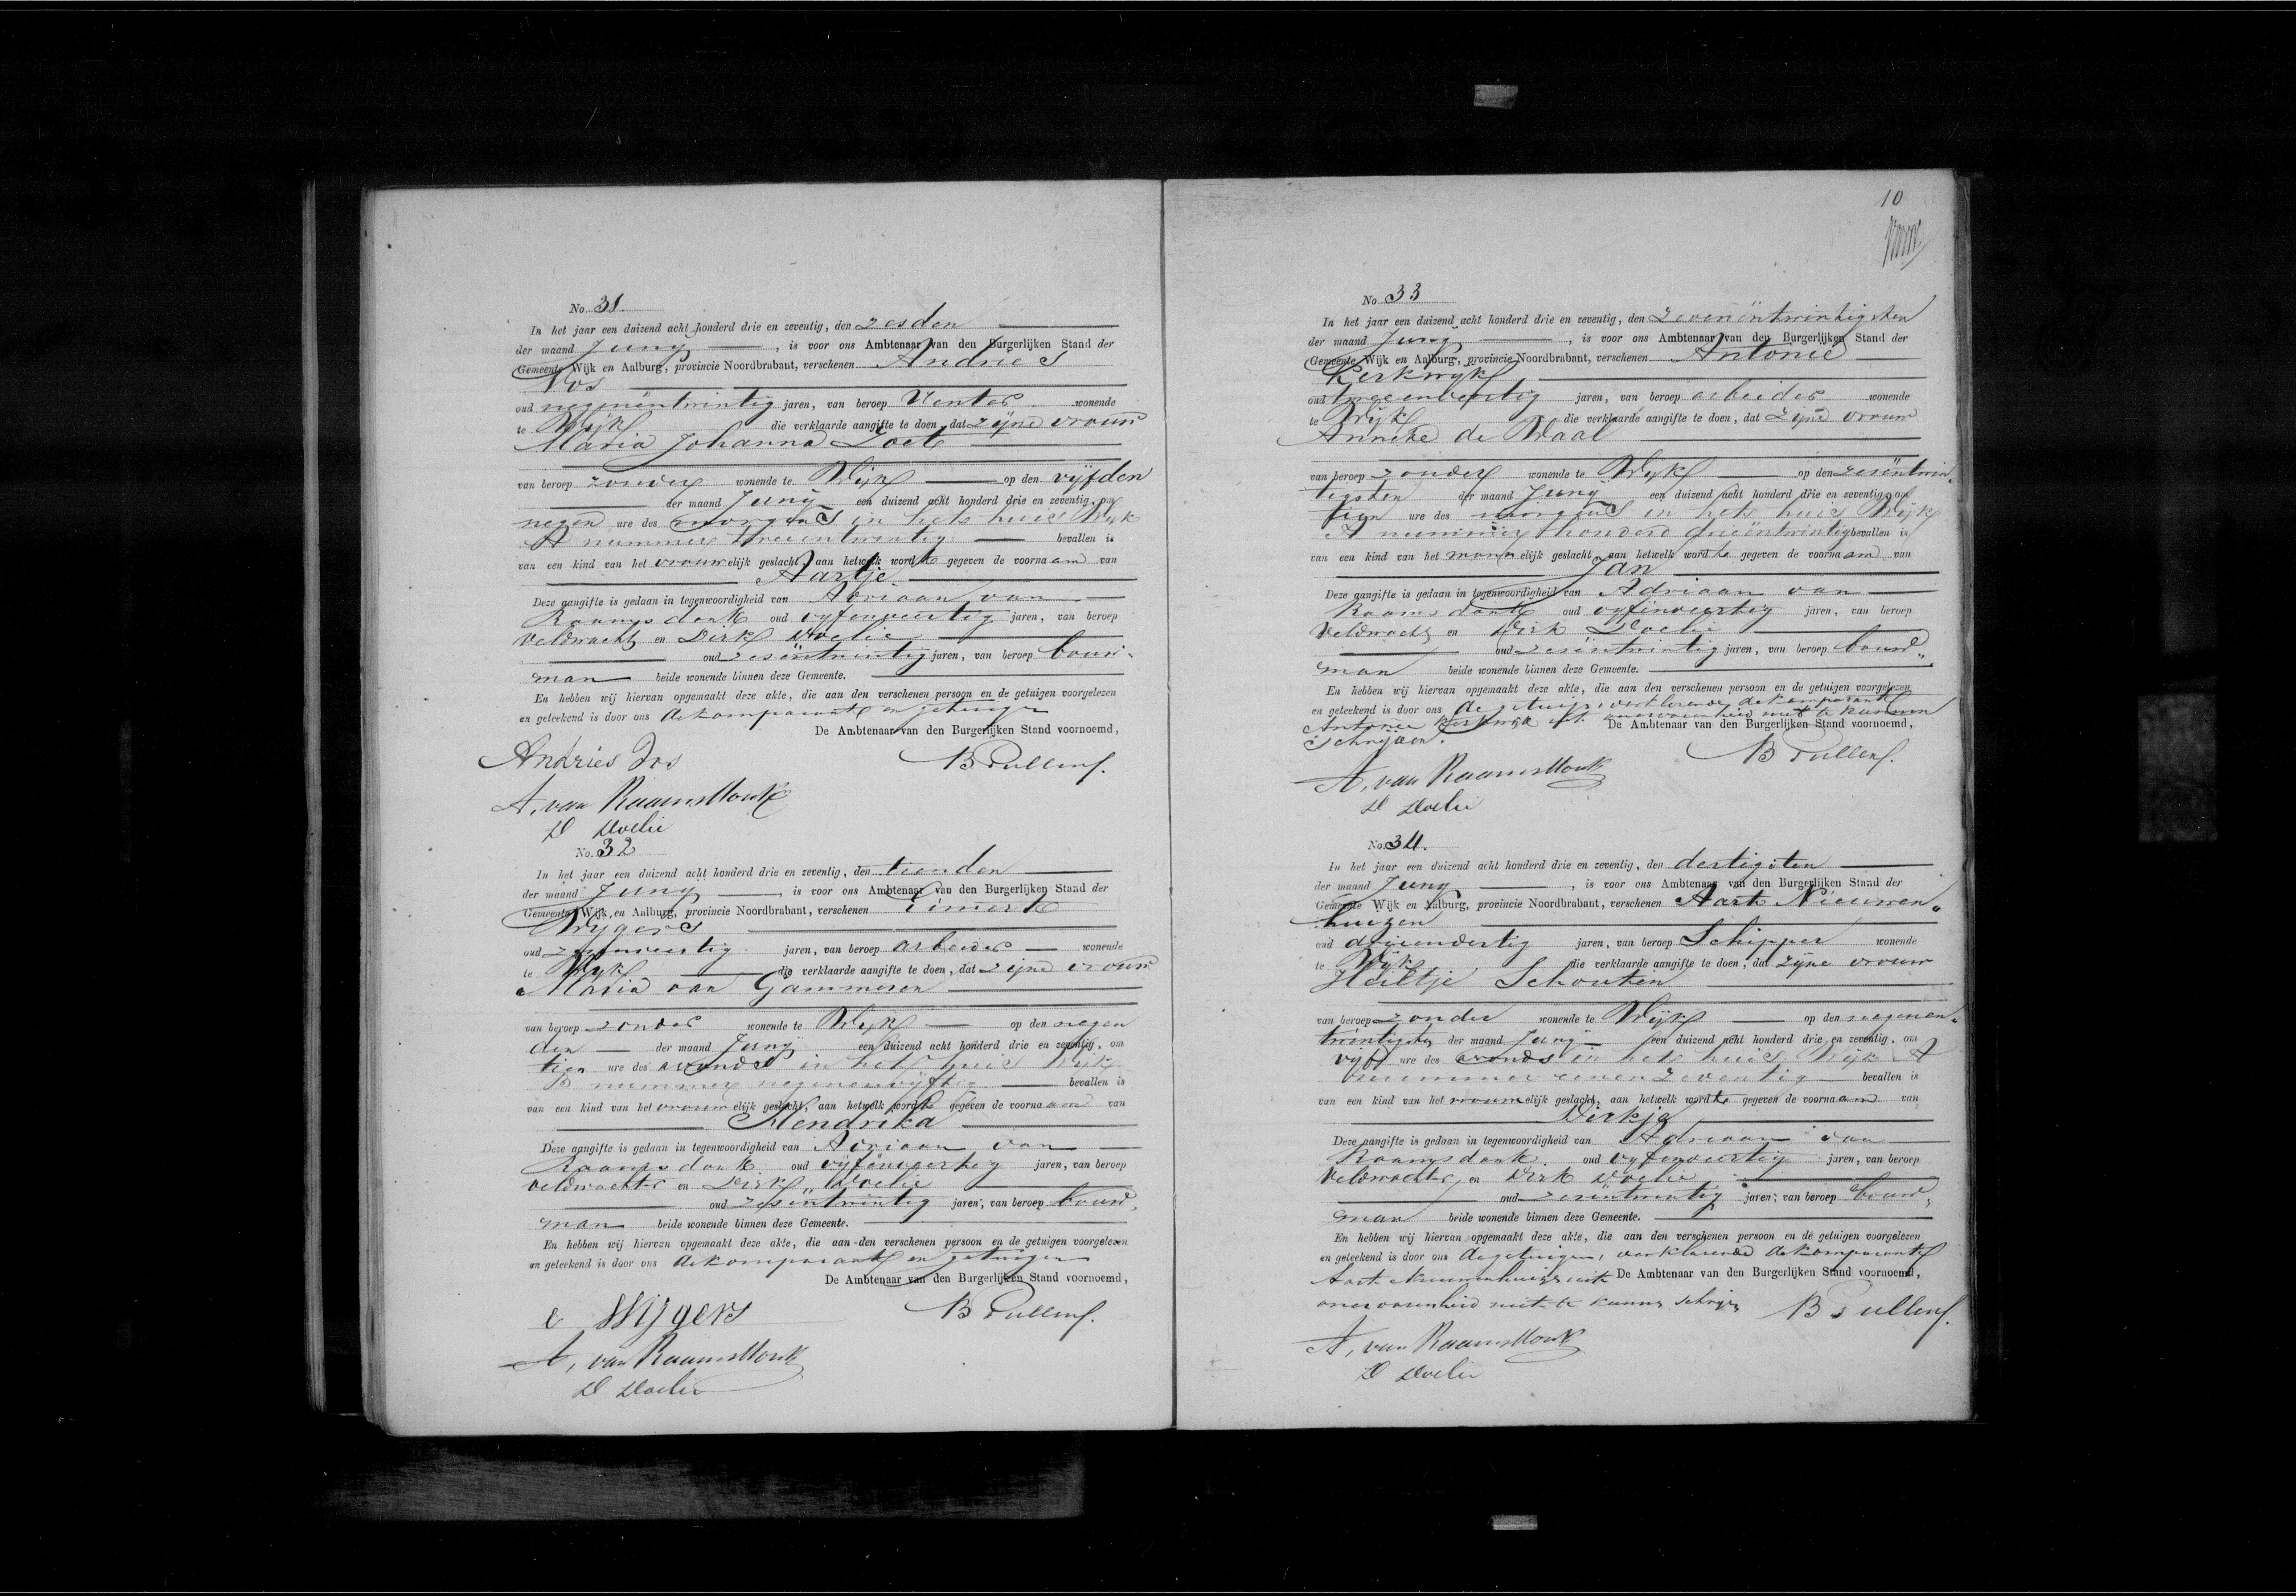 No. 31.
In het jaar een duizend acht honderd drie en zeventig, den zesden
der maand Junij, is voor ons Ambtenaar van den Burgerlijken Stand der
Gemeente Wijk en Aalburg, provincie Noordbrabant, verschenen Andries
Vos
oud negenëntwintig jaren, van beroep Venter wonende
te Wijk die verklaarde aangifte te doen, dat zijne vrouw
Maria Johanna
van beroep zonder wonende te Wijk op den vijfden
der maand Junij een duizend acht honderd drie en zeventig, om
negen ure des morgens in het huis Wijk
A nummer tweeentwintig bevallen is
van een kind van het vrouwelijk geslacht, aan hetwelk wordt gegeven de voornaam van
Aartje
Deze aangifte is gedaan in tegenwoordigheid van Adriaan van
Raamsdonk oud vijfenveertig jaren, van beroep
veldwacht en Dirk Doelie
oud zesëntwintig jaren, van beroep bouw-
man beide wonende binnen deze Gemeente.
En hebben wij hiervan opgemaakt deze akte, die aan den verschenen persoon en de getuigen voorgelezen
en geteekend is door ons de komparant en getuigen
De Ambtenaar van den Burgerlijken Stand voornoemd,
Andries Vos B Pullens.
A, van Raamsdonk
D Doelie
No. 32
In het jaar een duizend acht honderd drie en zeventig, den tienden
der maand Junij, is voor ons Ambtenaar van den Burgerlijken Stand der
Gemeente Wijk en Aalburg, provincie Noordbrabant, verschenen
Wijgers
oud jaren, van beroep arbeider wonende
te Wijk die verklaarde aangifte te doen, dat zijne vrouw
Maria van Gammeren
van beroep zonder wonende te Wijk op den negen
den der maand Junij een duizend acht honderd drie en zeventig, om
tien ure des avonds in het huis Wijk
B nummer negenenvijftig bevallen is
van een kind van het vrouwelijk geslacht, aan hetwelk wordt gegeven de voornaam van
Hendrika
Deze aangifte is gedaan in tegenwoordigheid van Adriaan van
Raamsdonk oud vijfenveertig jaren, van beroep
veldwachter en Dirk Doelie
oud zesëntwintig jaren, van beroep bouw-
man beide wonende binnen deze Gemeente.
En hebben wij hiervan opgemaakt deze akte, die aan den verschenen persoon en de getuigen voorgelezen
en geteekend is door ons de komparant en getuigen
De Ambtenaar van den Burgerlijken Stand voornoemd,
Wijgers B Pullens.
A, van Raamsdonk
D Doelie
10
No. 33
In het jaar een duizend acht honderd drie en zeventig, den zevenëntwintigsten
der maand Junij, is voor ons Ambtenaar van den Burgerlijken Stand der
Gemeente Wijk en Aalburg, provincie Noordbrabant, verschenen Antonie
Kerkwijk
oud tweeenveertig jaren, van beroep arbeider wonende
te Wijk die verklaarde aangifte te doen, dat zijne vrouw
Anneke de Waal
van beroep zonder wonende te Wijk op den zesëntwin-
tigsten der maand Junij een duizend acht honderd drie en zeventig, om
tien ure des morgens in het huis Wijk
A nummer honderd drieëntwintig bevallen is
van een kind van het mannelijk geslacht, aan hetwelk wordt gegeven de voornaam van
Jan
Deze aangifte is gedaan in tegenwoordigheid van Adriaan van
Raamsdonk oud vijfenveertig jaren, van beroep
Veldwacht en Dirk Doelie
oud zesëntwintig jaren, van beroep bouw-
man beide wonende binnen deze Gemeente.
En hebben wij hiervan opgemaakt deze akte, die aan den verschenen persoon en de getuigen voorgelezen
en geteekend is door ons de getuigen, verklarende de komparant
Antonie Kerkwijk uit onervarenheid niet te kunnen
De Ambtenaar van den Burgerlijken Stand voornoemd,
schrijven.
B Pullens.
A, van Raamsdonk
D Doelie
No. 34.
In het jaar een duizend acht honderd drie en zeventig, den dertigsten
der maand Junij, is voor ons Ambtenaar van den Burgerlijken Stand der
Gemeente Wijk en Aalburg, provincie Noordbrabant, verschenen Aart Nieuwen-
huizen
oud drieendertig jaren, van beroep Schipper wonende
te Wijk die verklaarde aangifte te doen, dat zijne vrouw
Heiltje Schouten
van beroep zonder wonende te Wijk op den negenen-
twintigsten der maand Junij een duizend acht honderd drie en zeventig, om
vijf ure des avonds in het huis Wijk A
nummer eenenzeventig bevallen is
van een kind van het vrouwelijk geslacht, aan hetwelk wordt gegeven de voornaam van
Dirkje
Deze aangifte is gedaan in tegenwoordigheid van Adriaan van
Raamsdonk oud vijfenveertig jaren, van beroep
Veldwachter en Dirk Doelie
oud zesëntwintig jaren, van beroep bouw-
man beide wonende binnen deze Gemeente.
En hebben wij hiervan opgemaakt deze akte, die aan den verschenen persoon en de getuigen voorgelezen
en geteekend is door ons de getuigen, verklarende de komparant
Aart Nieuwenhuizen uit De Ambtenaar van den Burgerlijken Stand voornoemd,
onervarenheid niet te kunnen schrijven B Pullens.
A, van Raamsdonk
D Doelie